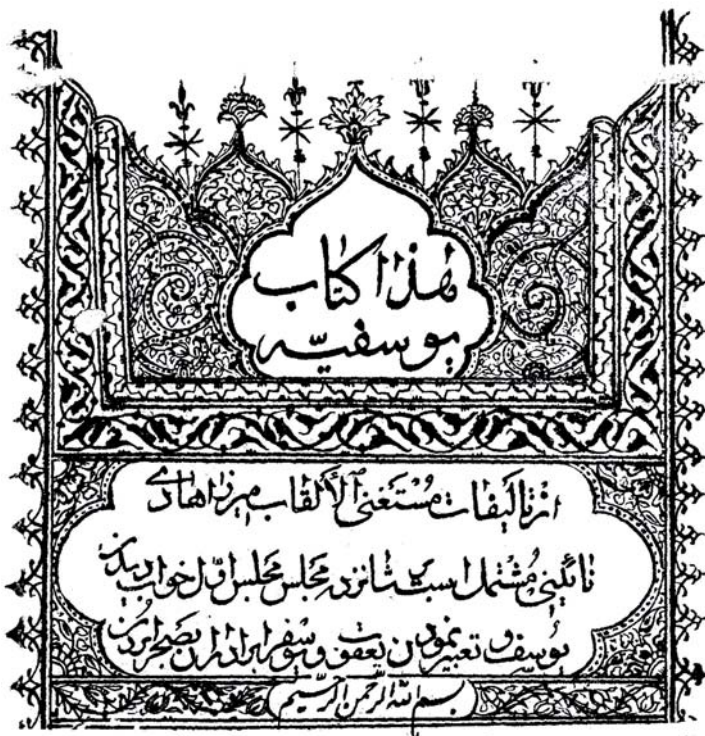 هذا كتاب
يوسفيه
از تأليفات مستغنى الألقاب ميرزا هادى
نائينى مشتمل است بر شانزده مجلس مجلس اول خواب ديدن
يوسف و تعبير نمودن يعقوب و يوسف را برادران بصحرا بردن
بسم الله الرحمن الرحيم